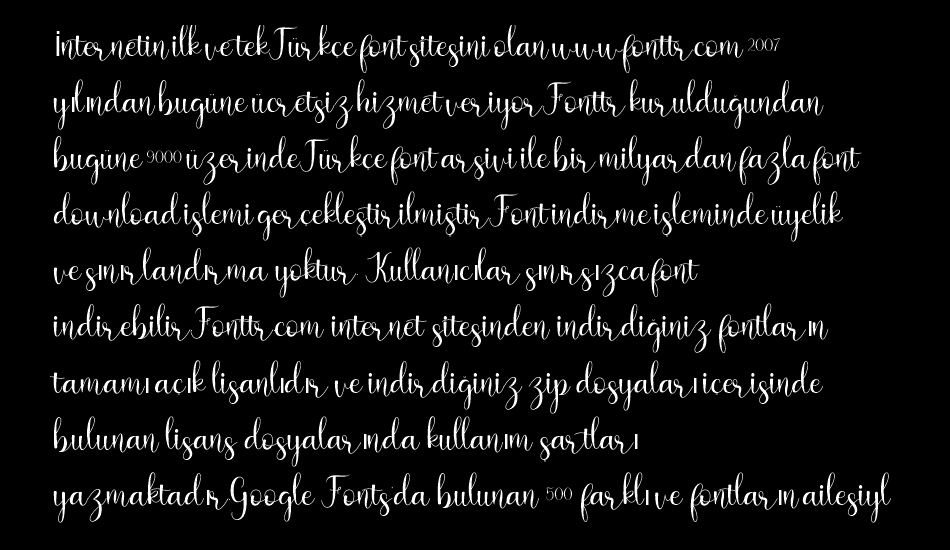 İnternetin ilk ve tek Türkçe font sitesini olan www.fonttr.com 2007
yılından bugüne ücretsiz hizmet veriyor. Fonttr kurulduğundan
bugüne 9000 üzerinde Türkçe font arşivi ile bir milyardan fazla font
download işlemi gerçekleştirilmiştir. Font indirme işleminde üyelik
ve sınırlandırma yoktur. Kullanıcılar sınırsızca font
indirebilir. Fonttr.com internet sitesinden indirdiğiniz fontların
tamamı açık lisanlıdır ve indirdiğiniz zip dosyaları içerisinde
bulunan lisans dosyalarında kullanım şartları
yazmaktadır. Google Fonts'da bulunan 500 farklı ve fontların ailesiyl